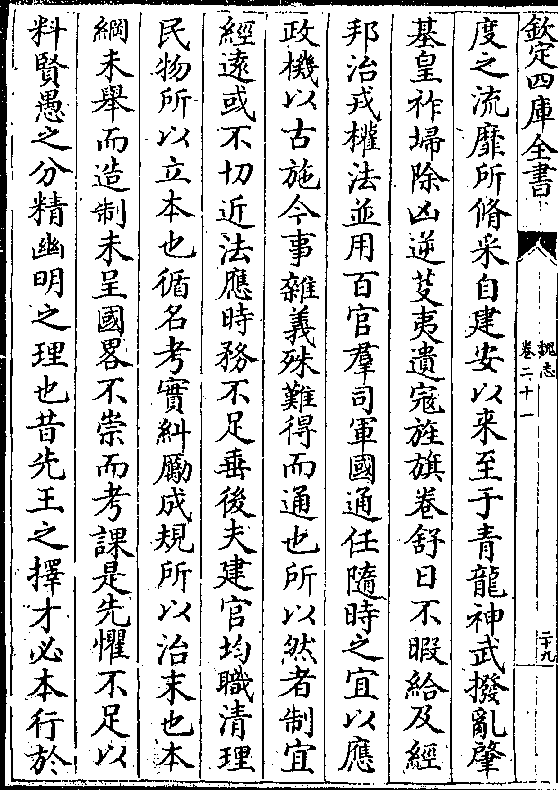 欽定四庫全書
魏志
卷二十一
二十九
度之流靡所脩采自建安以來至于青龍神武撥亂肇
基皇祚埽除凶逆芟夷遺寇旌旗卷舒日不暇給及經
邦治戎權法並用百官羣司軍國通任隨時之宜以應
政機以古施今事雜義殊難得而通也所以然者制宜
經遠或不切近法應時務不足垂後夫建官均職清理
民物所以立本也循名考實糾勵成規所以治末也本
綱未舉而造制未呈國畧不崇而考課是先懼不足以
料賢愚之分精幽明之理也昔先王之擇才必本行於